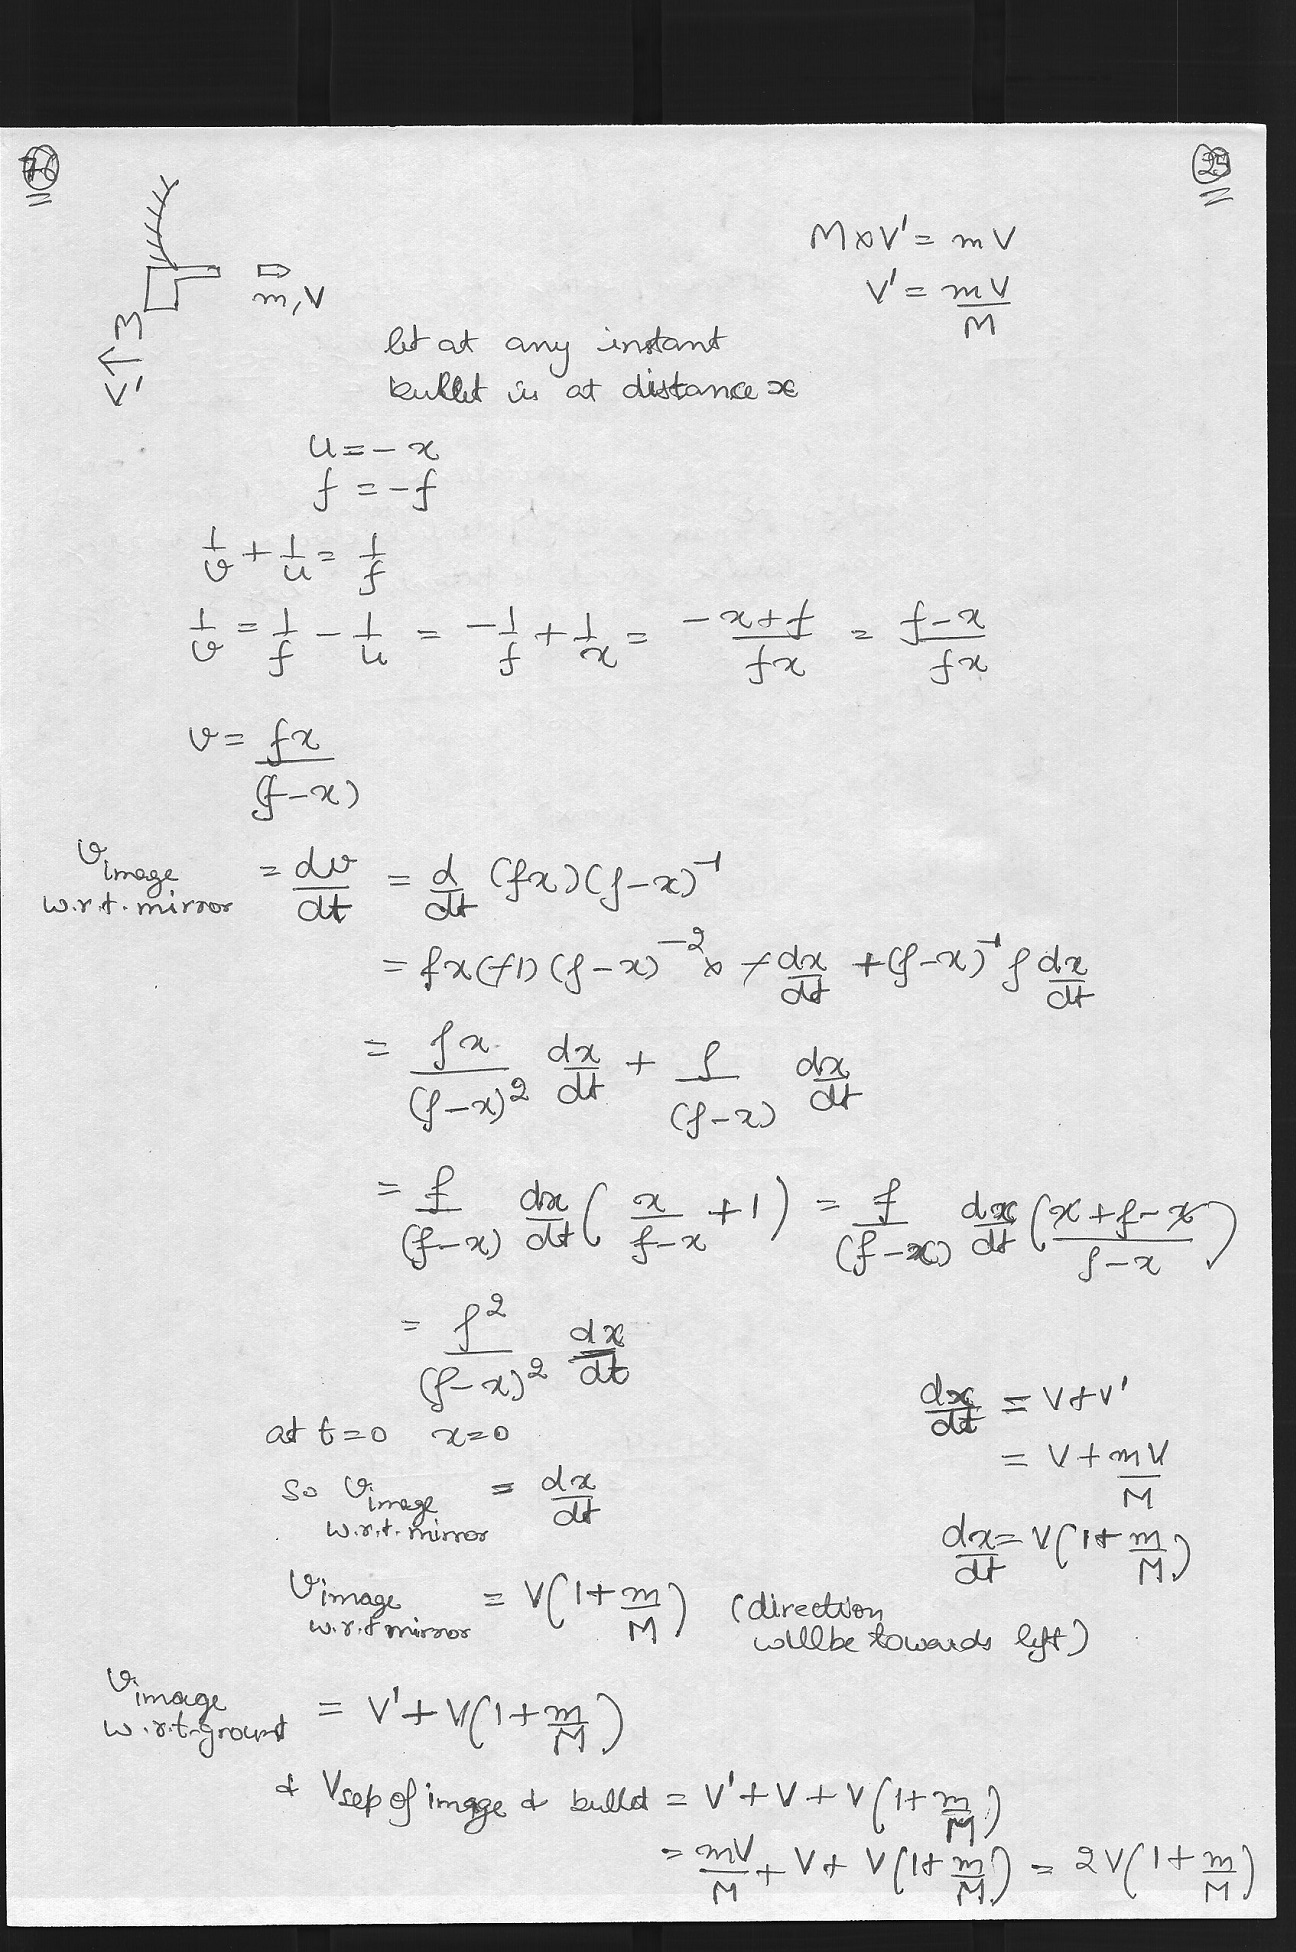 76
25
M × V' = mV
V' = mV/M
m, V
M
V'
let at any instant
bullet is at distance x
u = - x
f = - f
1/v + 1/u = 1/f
1/v = 1/f - 1/u = -1/f + 1/x = (-x+f)/fx = (f-x)/fx
v = fx/(f-x)
v image w.r.t. mirror = dv/dt = d/dt (fx)(f-x)^-1
= fx(-1)(f-x)^-2 × -dx/dt + (f-x)^-1 f dx/dt
= fx/(f-x)^2 dx/dt + f/(f-x) dx/dt
= f/(f-x) dx/dt ( x/(f-x) + 1 ) = f/(f-x) dx/dt ( (x+f-x)/(f-x) )
= f^2/(f-x)^2 dx/dt
at t=0 x=0
so v image w.r.t. mirror = dx/dt
dx/dt = V + V'
= V + mV/M
dx/dt = V(1+m/M)
v image w.r.t mirror = V(1+m/M) (direction
will be towards left)
v image w.r.t. ground = V' + V(1+m/M)
& Vsep of image & bullet = V' + V + V(1+m/M)
= mV/M + V + V(1+m/M) = 2V(1+m/M)